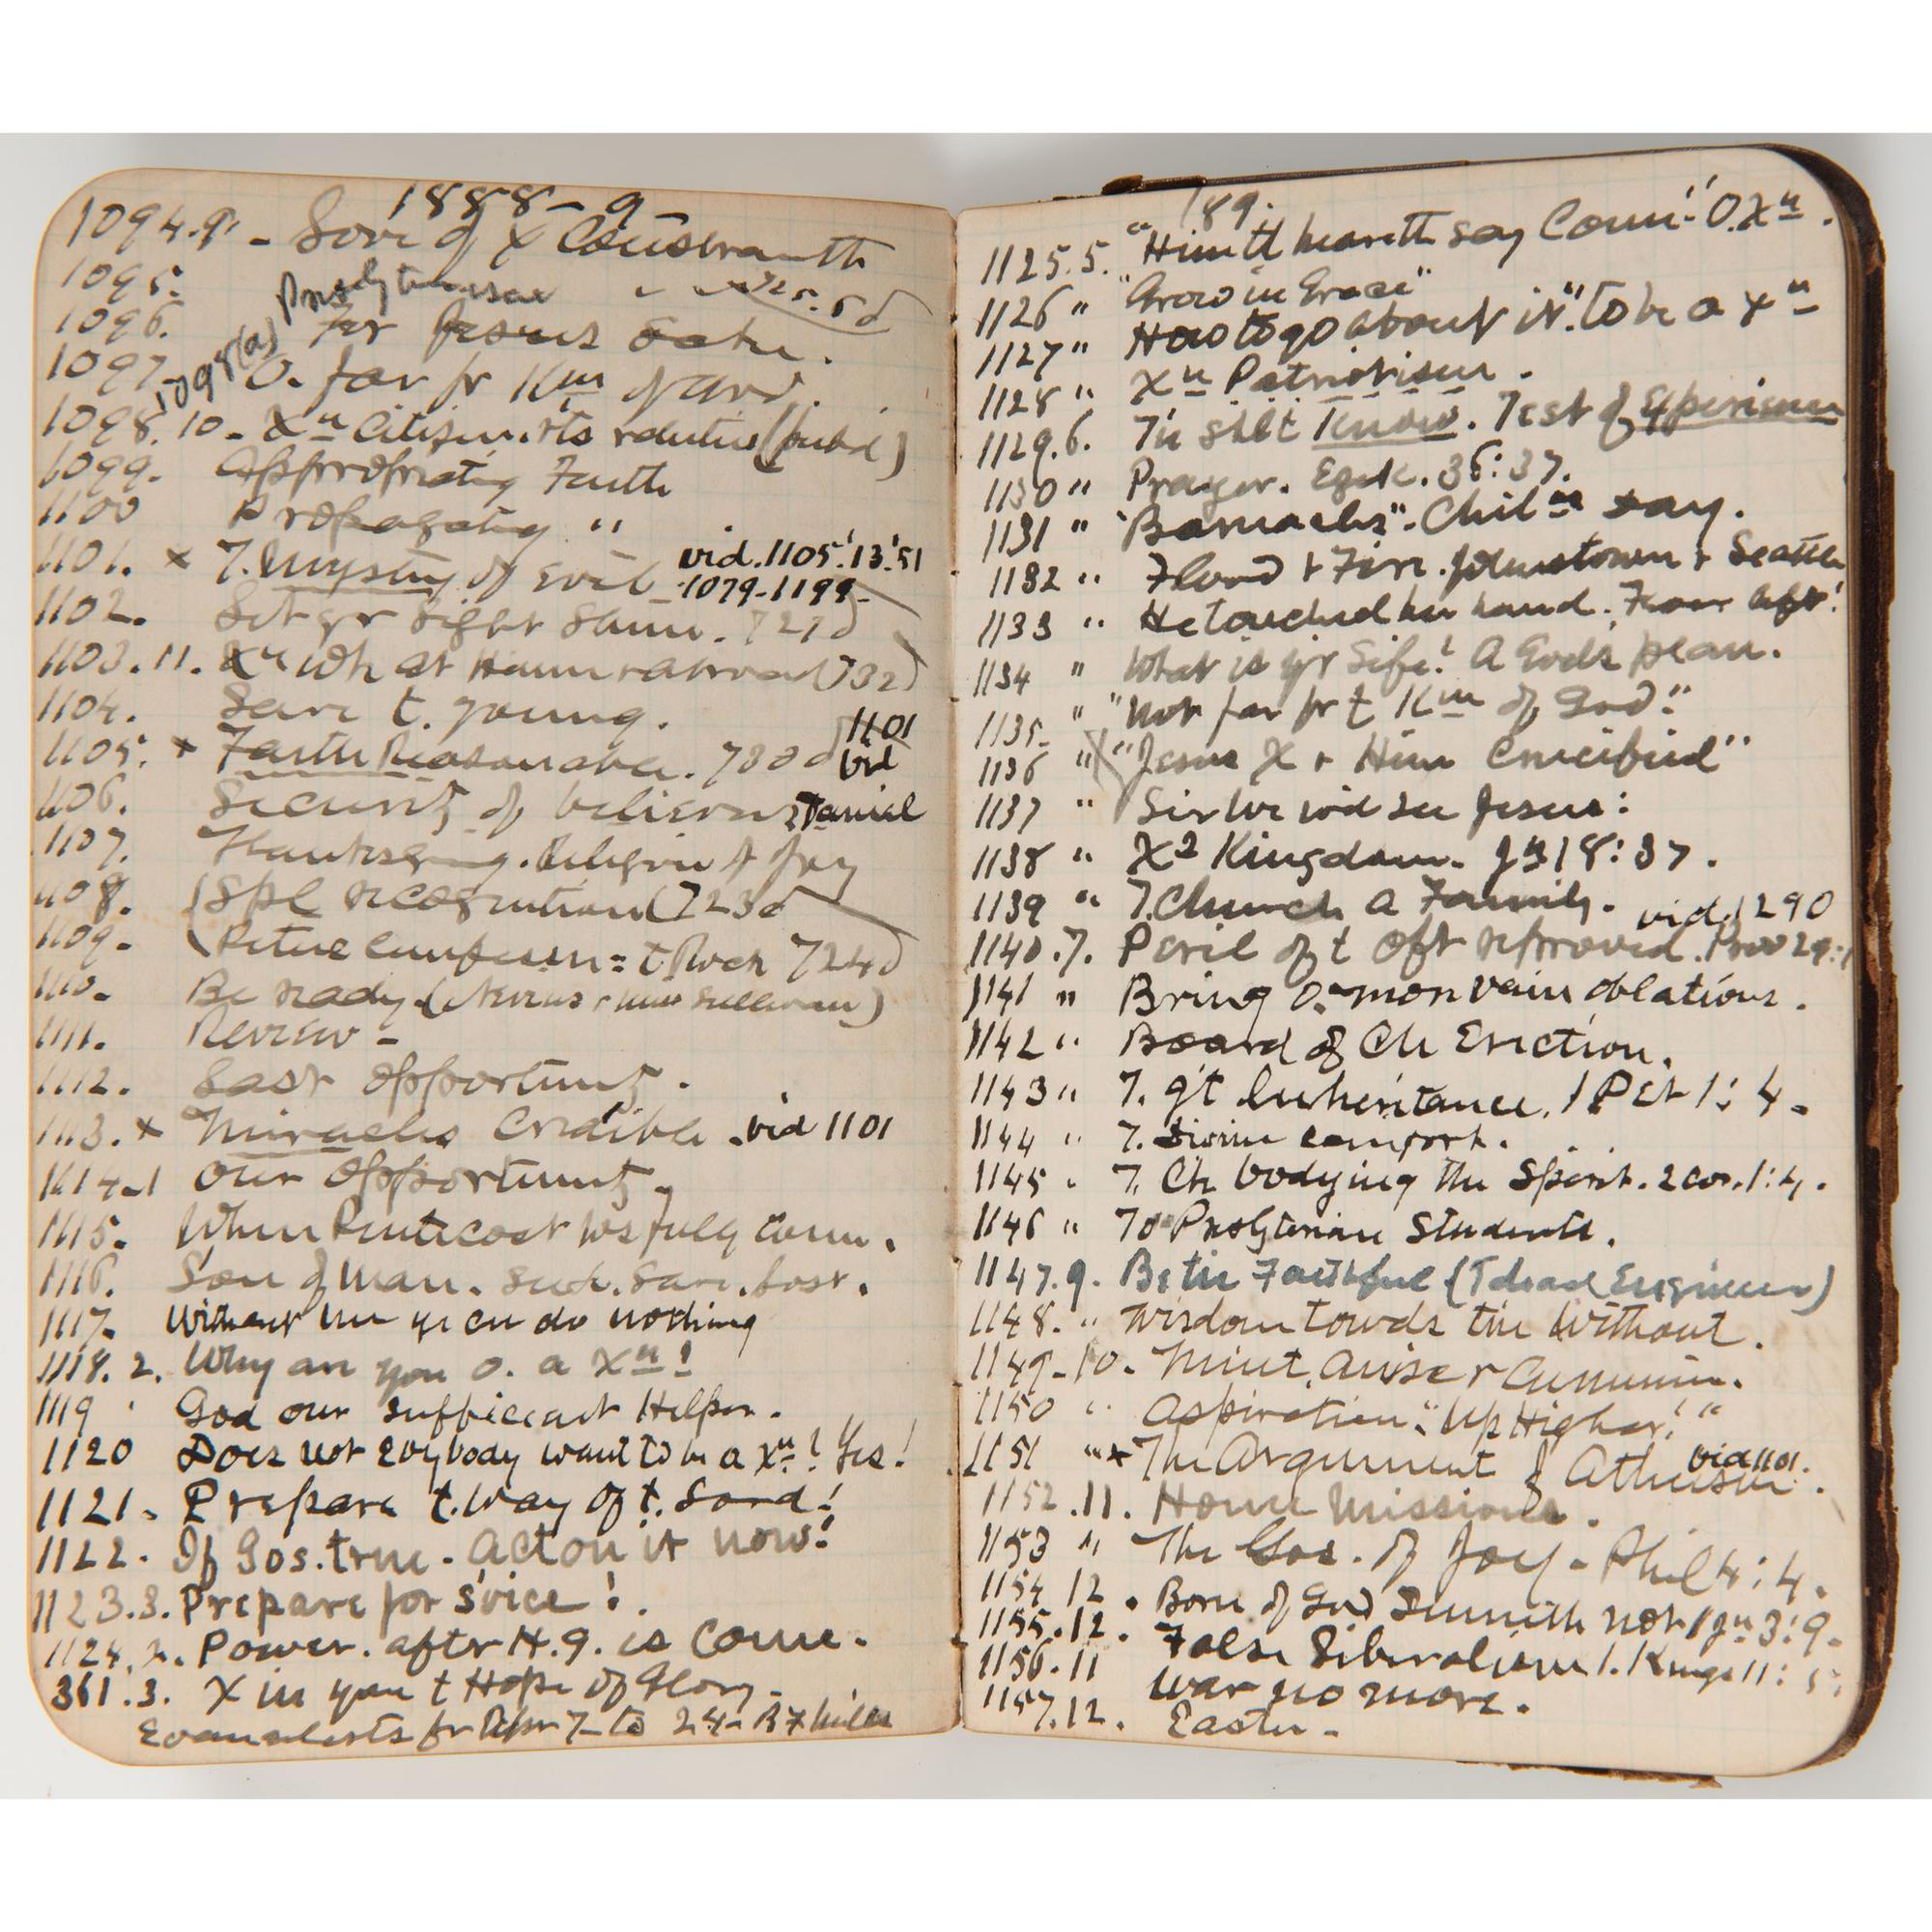 1888-9-
1094.9. - Love of X Constraineth
1095. Presbyterianism
1096. For Jesus Sake.
1097 O. far fr Km of God.
1098(a)
1098.10- Xn Citizen. rts & duties (pub'd)
1099. Appropriating Faith
1100 Propagating "
1101. x T. Mystery of Evil vid. 1105'.13'.51
1079-1199-
1102. Let yr Light Shine. 727
1103.11. Xn Wk at Home & abroad 732)
1104. Save t. young.
1105. x Faith Reasonable. 730 1101 vid
1106. Security of believers Daniel
1107. Thanksgiving. Religion of Joy
1108. (Spl recognition (723
1109- (Peters confession = t Rock 724
1110. Be ready. ( & Miss Sullivan)
1111. Review -
1112. Last Opportunity.
1113. x Miracles Credible. vid 1101
1114-1 Our Opportunity.
1115. When Pentecost ws fully come.
1116. Son of Man. Seek. Save. Lost.
1117. Without me ye cn do nothing
1118. 2. Why are you o. a Xn?
1119 God our sufficient Helper.
1120 Does not evybody want to be a Xn? Yes!
1121. Prepare t. way of t. Lord!
1122. If Gos. true - act on it now!
1123.3. Prepare for s'vice!
1124. Power. after H.G. is Come.
361.3. X in you t Hope of Glory.
Evangelists fr 7- to 24- B F Mills
189.
1125.5. "Him tt heareth say Come" O. Xn.
1126 " "Grow in Grace"
1127 " How to go about it". to be a Xn
1128 " Xn Patriotism.
1129.6. Tn shlt Know. Test of Experience
1130 " Prayer. Ezek. 36:37.
1131 " "Barnacles". Chiln Day.
1132 " Flood & Fire. Johnstown & Seattle
1133 " He touched her hand. Fever left!
1134 " What is yr Life? A God's plan.
1135 " "Not far fr t Km of God."
1136 " "Jesus X & Him Crucified"
1137 " Sir we wd see Jesus:
1138 " Xs Kingdom. Jn 18:37.
1139 " T. Church a Family. vid. 1290
1140.7. Peril of t Oft reproved. Prov 29:1
1141 " Bring o. more vain oblations.
1142 " Board of Ch Erection.
1143 " T. gt Inheritance. 1 Pet 1:4.
1144 " T. Divine comfort.
1145 " T. Ch bodying the Spirit. 2 Cor. 1:4.
1146 " To Presbyterian Students.
1147.9. Be tu Faithful (T dead Engineer)
1148. " Wisdom towds thse without.
1149-10. Mint, anise & Cummin.
1150 " Aspiration. "Up Higher!"
1151 " x The Argument of Atheism. vid 1101.
1152.11. Home Missions.
1153 " The Gos. of Joy - Phil 4:4.
1154.12. Born of God Sinneth not 1 Jn 3:9.
1155.12. False Liberalism 1. Kings 11:5:
1156.11 War no more.
1157.12. Easter.